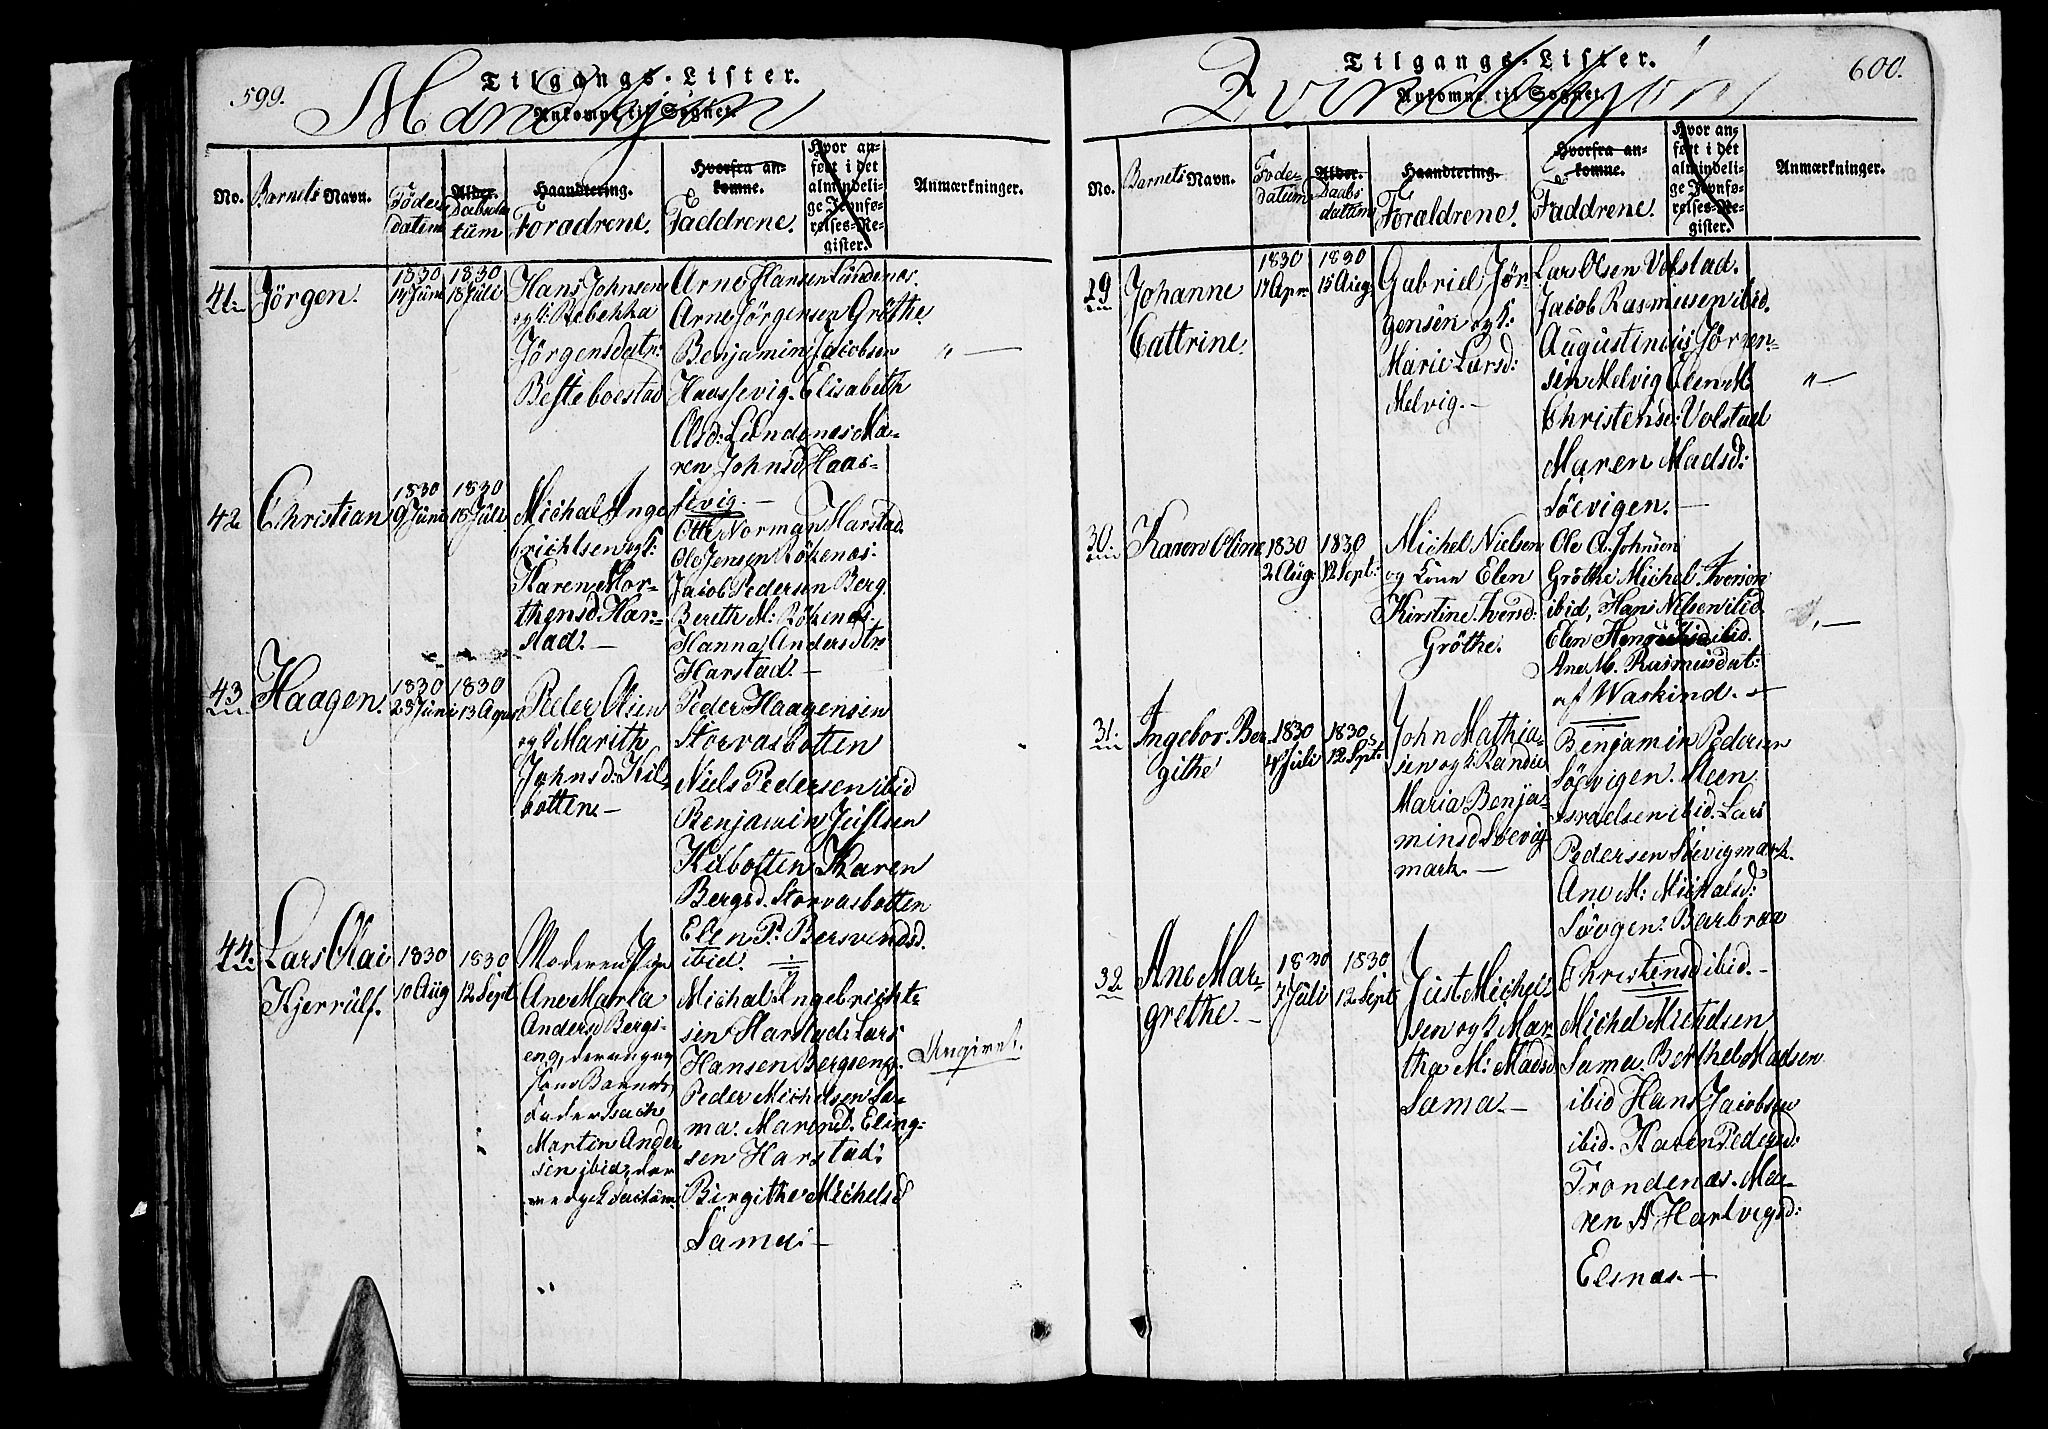 599.
Tilgangs-Lister.
Ankomne til Sognet.
Mandkjön
No.
Barnets Navn.
Föde
datum
Alder.
Daabsda
tum
Haandtering.
Foraldrene.
Hvorfra an-
komne.
Faddrene.
Hvor an-
ført i det
almindeli-
ge Jevnfø-
relses-Re-
gister.
Anmærkninger.
41.
Jörgen.
1830
14 Juni
1830
18 Juli
Hans Johnsen
og k: Rebekka
Jörgensdatr:
Besteboestad
Arne Hansen Lundenæs.
Arne Jörgensen Gröthe.
Benjamin Jacobsen
Haassevig. Elisabeth
Olsd: Lundenæs. Ma-
ren Johnsd Haas-
sevig. —
" —
42
Christian
1830
9 Juni
1830
18 Juli
Michal Inge
brichtsen og k:
Karen Mor-
thensd Har-
stad. —
Otte Norman Harstad.
Ole Jensen Rökenæs.
Jacob Pedersen Berg.
Bereth M: Rökenæs.
Hanna Anders dtr
Harstad. —
43
Haagen.
1830
23 Juni
1830
13 Aug
Peder Olsen
og k Marith
Johnsd: Kil-
botten. —
Peder Haagensen
Storvasbotten
Niels Pedersen ibid
Benjamin Justsen
Kilbotten Karen
Bergsd. Storvasbotten
Elen P: Bersvendsd.
ibid.
44.
Lars Olai
Kjerrulf.
1830
10 Aug
1830
12 Sept
Moderen Pige
Ane Maria
Andersd Bergs-
eng, der angav
som Barnets
Fader Isach
Martin Ander
sen ibid, der
vedgik Factum
Michal Ingebricht-
sen Harstad: Lars
Hansen Bergseng.
Peder Michelsen Sa-
ma. Maren d. Eling-
sen Harstad:
Birgithe Michelsd
Sama: —
Angivet.
600.
Tilgangs-Lister.
Ankomne til Sognet.
Qvindekjön
No.
Barnets Navn.
Föde
datum
Alder.
Daabs
datum
Haandtering.
Foraldrene.
Hvorfra an-
komne.
Faddrene.
Hvor an-
ført i det
almindeli-
ge Jevnfø-
relses-Re-
gister.
Anmærkninger.
29
Johanne
Cattrine.
1830
17 Apr:
1830
15 Aug
Gabriel Jör-
gensen og k:
Marie Larsd:
Melvig. —
Lars Olsen Volstad.
Jacob Rasmusen ibid.
Augustinus Jörgen-
sen Melvig Elen M.
Christensd: Volstad
Maren Madsd:
Söevigen. —
" —
30.
Karen Oline
1830
2 Aug:
1830
12 Sept:
Michel Nielsen
og Kone Elen
Kirstine Iversd:
Gröthe.
Ole A. Johnsen
Gröthe Michel Iversen
ibid, Hans Nilsen ibid
Elen ibid.
Ane M. Rasmusdat:
af Waskind. —
31.
Ingebor Ber
githe
1830
4 Juli
1830
12 Sept:
John Mathia-
sen og k: Randi
Maria Benja-
minsd Söevig
mark. —
Benjamin Pedersen
Söevigen. Steen
Israelsen ibid. Lars
Pedersen Söevigmark.
Ane M: Michalsd:
Sövgen. Barbroe
Christensd ibid. —
32
Ane Mar-
grethe. —
1830
7 Juli
1830
12 Sept:
Just Michel-
sen og k Mar-
tha M: Madsd
Sama. —
Michel Michelsen
Sama. Berthel Madsen
ibid Hans Jacobsen
ibid. Karen Pedersd:
Trondenæs. Ma-
ren A Hartvigsd:
Elsnæs. —